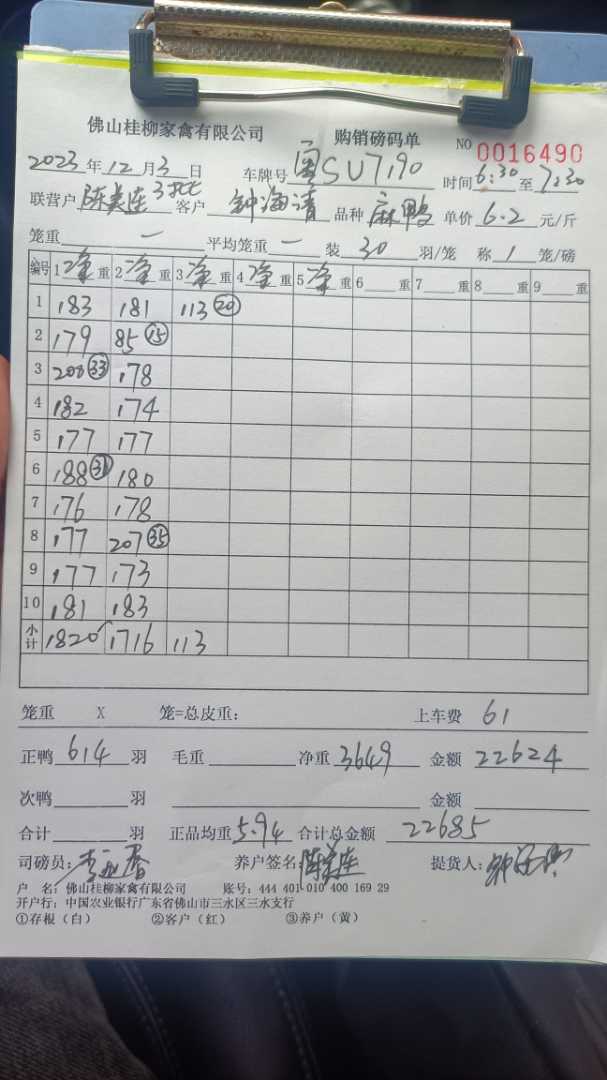 佛山桂柳家禽有限公司 购销磅码单 NO 0016490
2023 年 12 月 3 日 车牌号 SU7190 时间 6:30 至 7:30
联营户 陈美连 客户 钟海清 品种 麻鸭 单价 6.2 元/斤
笼重 — 平均笼重 — 装 30 羽/笼 称 1 笼/磅
编号 1 净 重 2 净 重 3 净 重 4 净 重 5 净 重 6 重 7 重 8 重 9 重
1 183 181 113 20
2 179 85 15
3 200 33 178
4 182 174
5 177 177
6 188 31 180
7 176 178
8 177 207 35
9 177 173
10 181 183
小计 1820 1716 113
笼重 X 笼=总皮重: 上车费 61
正鸭 614 羽 毛重 净重 3649 金额 22624
次鸭 羽 金额
合计 羽 正品均重 5.94 合计总金额 22685
司磅员: 养户签名: 陈美连 提货人:
户 名: 佛山桂柳家禽有限公司 账号: 444 401 010 400 169 29
开户行: 中国农业银行广东省佛山市三水区三水支行
①存根（白） ②客户（红） ③养户（黄）